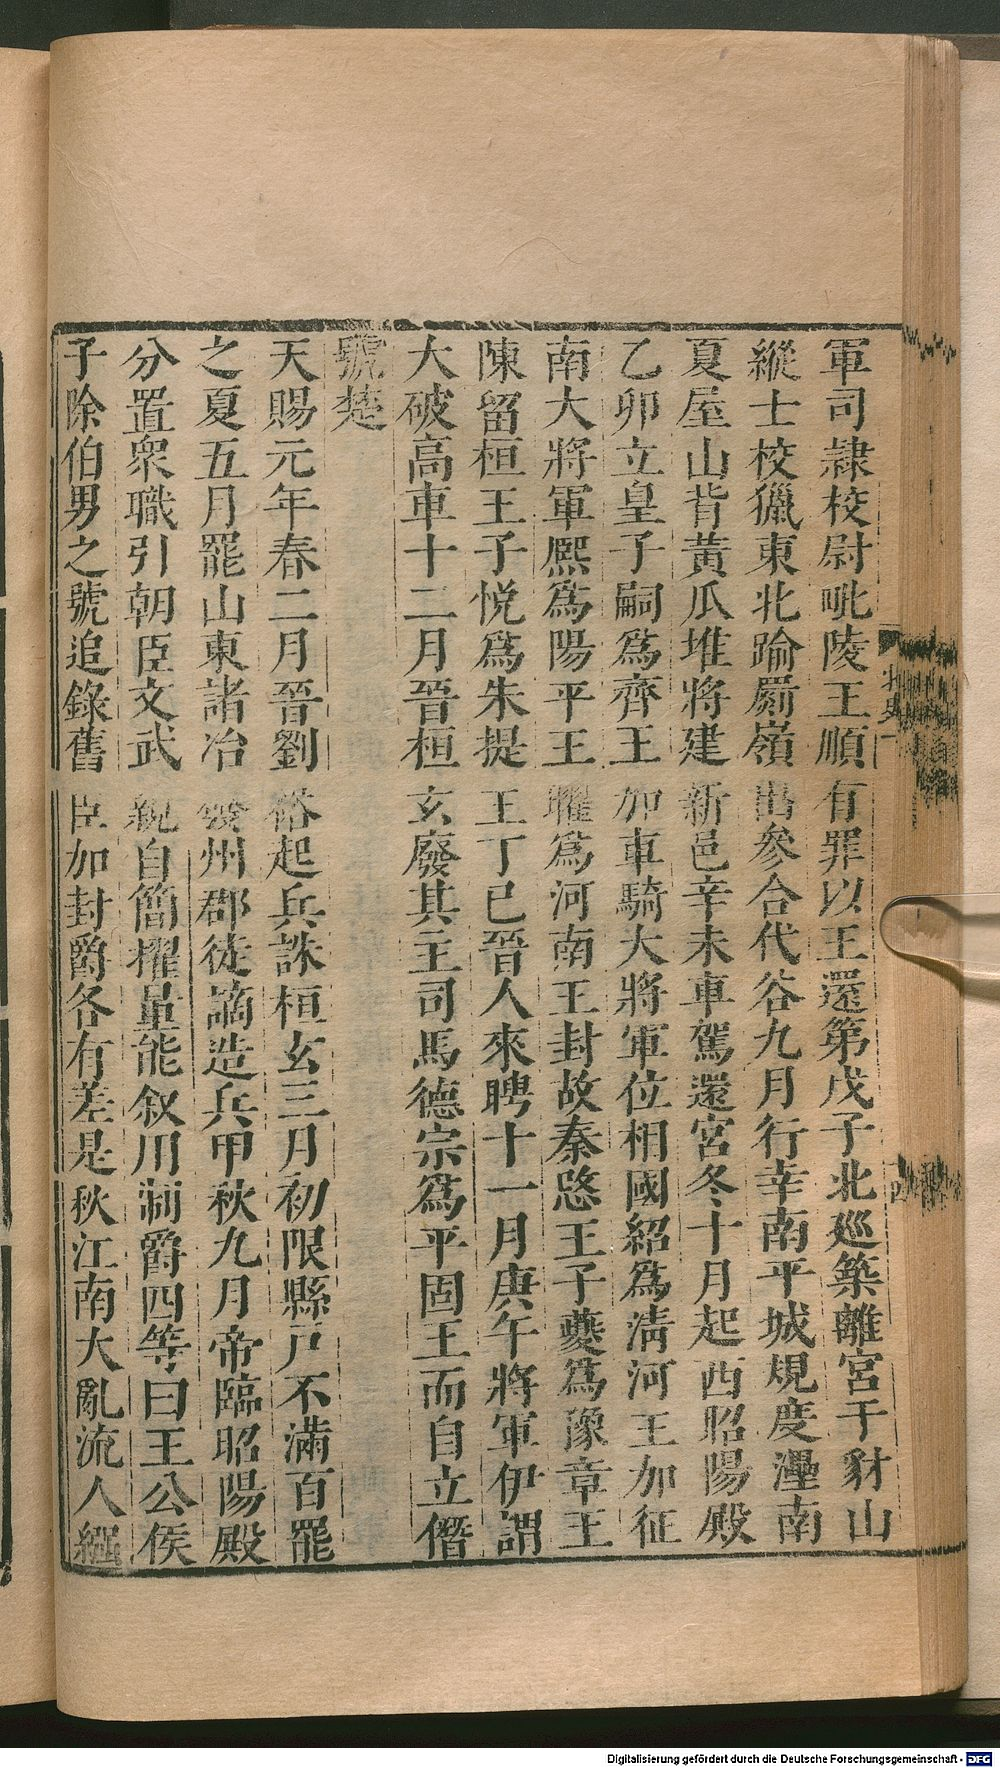 軍司隸校尉毗陵王順有罪以王還第戊子北巡築離宮于豺山
縱士校獵東北踰罽嶺出參合代谷九月行幸南平城規度㶟南
夏屋山背黃瓜堆將建新邑辛未車駕還宮冬十月起西昭陽殿
乙卯立皇子嗣爲齊王加車騎大將軍位相國紹爲淸河王加征
南大將軍熙爲陽平王曜爲河南王封故秦愍王子夔爲豫章王
陳留桓王子悅爲朱提王丁巳晉人來聘十一月庚午將軍伊謂
大破高車十二月晉桓玄廢其主司馬德宗爲平固王而自立僭
號楚
天賜元年春二月晉劉裕起兵誅桓玄三月初限縣戸不滿百罷
之夏五月罷山東諸冶發州郡徒謫造兵甲秋九月帝臨昭陽殿
分置衆職引朝臣文武親自簡擢量能叙用制爵四等曰王公侯
子除伯男之號追錄舊臣加封爵各有差是秋江南大亂流人繦
Digitalisierung gefördert durch die Deutsche Forschungsgemeinschaft - DFG